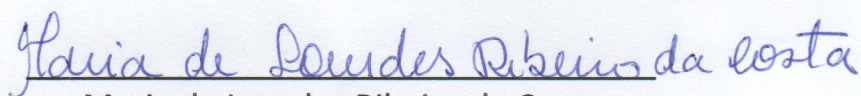 Maria de Lourdes Ribeiro da Costa
Maria de Lourdes Ribeiro da Costa